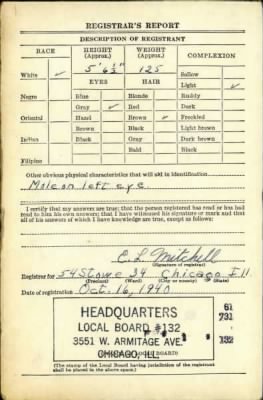 REGISTRAR'S REPORT
DESCRIPTION OF REGISTRANT
RACE HEIGHT (Approx.) WEIGHT (Approx.) COMPLEXION
5' 6½" 125 Sallow
White ✓ EYES HAIR Light ✓
Negro Blue Blonde Ruddy
Gray ✓ Red Dark
Oriental Hazel Brown ✓ Freckled
Brown Black Light brown
Indian Black Gray Dark brown
Bald Black
Filipino
Other obvious physical characteristics that will aid in identification
Mole on left eye
I certify that my answers are true; that the person registered has read or has had
read to him his own answers; that I have witnessed his signature or mark and that
all of his answers of which I have knowledge are true, except as follows:
E. L. Mitchell
(Signature of registrar)
Registrar for 54 Stowe 34 Chicago Ill
(Precinct) (Ward) (City or county) (State)
Date of registration Oct. 16, 1940
HEADQUARTERS
LOCAL BOARD #132
3551 W. ARMITAGE AVE.
CHICAGO, ILL.
61
731
132
(The stamp of the Local Board having jurisdiction of the registrant
shall be placed in the above space.)